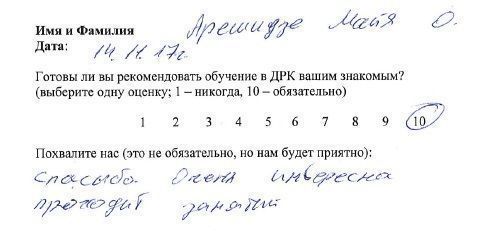 Имя и Фамилия Арешидзе Майя О.
Дата: 14.11.17г.
Готовы ли вы рекомендовать обучение в ДРК вашим знакомым?
(выберите одну оценку; 1 – никогда, 10 – обязательно)
1 2 3 4 5 6 7 8 9 10
Похвалите нас (это не обязательно, но нам будет приятно):
спасыба Очена инвересна
проходит занятий